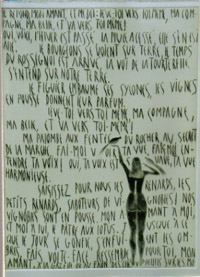 IL RÉPOND, MON AMANT, ET ME DIT: LÈVE-TOI VERS TOI-MÊME, MA COM-
PAGNE, MA BELLE, ET VA VERS TOI-MÊME!
OUI, VOICI, L'HIVER EST PASSÉ, LA PLUIE A CESSÉ, ELLE S'EN EST
ALLÉE. LES BOURGEONS SE VOIENT SUR TERRE, LE TEMPS
DU ROSSIGNOL EST ARRIVÉ, LA VOIX DE LA TOURTERELLE
S'ENTEND SUR NOTRE TERRE.
LE FIGUIER EMBAUME SES SYCONES, LES VIGNES
EN POUSSE DONNENT LEUR PARFUM.
LÈVE-TOI VERS TOI-MÊME, MA COMPAGNE,
MA BELLE, ET VA VERS TOI-MÊME!
MA PALOMBE AUX FENTES DU ROCHER, AU SECRET
DE LA MARCHE, FAIS-MOI VOIR TA VUE, FAIS-MOI EN-
TENDRE TA VOIX! OUI, TA VOIX EST SUAVE, TA VUE
HARMONIEUSE.
SAISISSEZ POUR NOUS LES RENARDS, LES
PETITS RENARDS, SABOTEURS DE VIGNOBLES! NOS
VIGNOBLES SONT EN POUSSE. MON AMANT À MOI,
ET MOI À LUI, LE PÂTRE AUX LOTUS, JUSQUE À CE
QUE LE JOUR SE GONFLE, S'ENFUIENT LES OM-
BRES. FAIS VOLTE-FACE, RESSEMBLE POUR TOI, MON